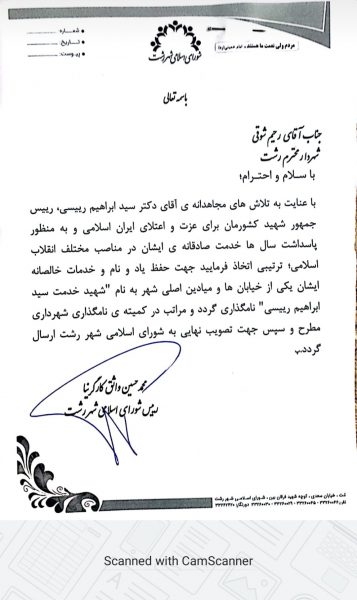 مردم ولی نعمت ما هستند. امام خمینی(ره)
شورای اسلامی شهر رشت
شماره:
تاریخ:
پیوست:
باسمه تعالی
جناب آقای رحیم شوقی
شهردار محترم رشت
با سلام و احترام؛
با عنایت به تلاش های مجاهدانه ی آقای دکتر سید ابراهیم رییسی، رییس
جمهور شهید کشورمان برای عزت و اعتلای ایران اسلامی و به منظور
پاسداشت سال ها خدمت صادقانه ی ایشان در مناصب مختلف انقلاب
اسلامی؛ ترتیبی اتخاذ فرمایید جهت حفظ یاد و نام و خدمات خالصانه
ایشان یکی از خیابان ها و میادین اصلی شهر به نام "شهید خدمت سید
ابراهیم رییسی" نامگذاری گردد و مراتب در کمیته ی نامگذاری شهرداری
مطرح و سپس جهت تصویب نهایی به شورای اسلامی شهر رشت ارسال
گردد.
محمد حسین واثق کارگرنیا
رییس شورای اسلامی شهر رشت
رشت ، خیابان سعدی، کوچه شهید عرفان بین ، شورای اسلامی شهر رشت
Scanned with CamScanner